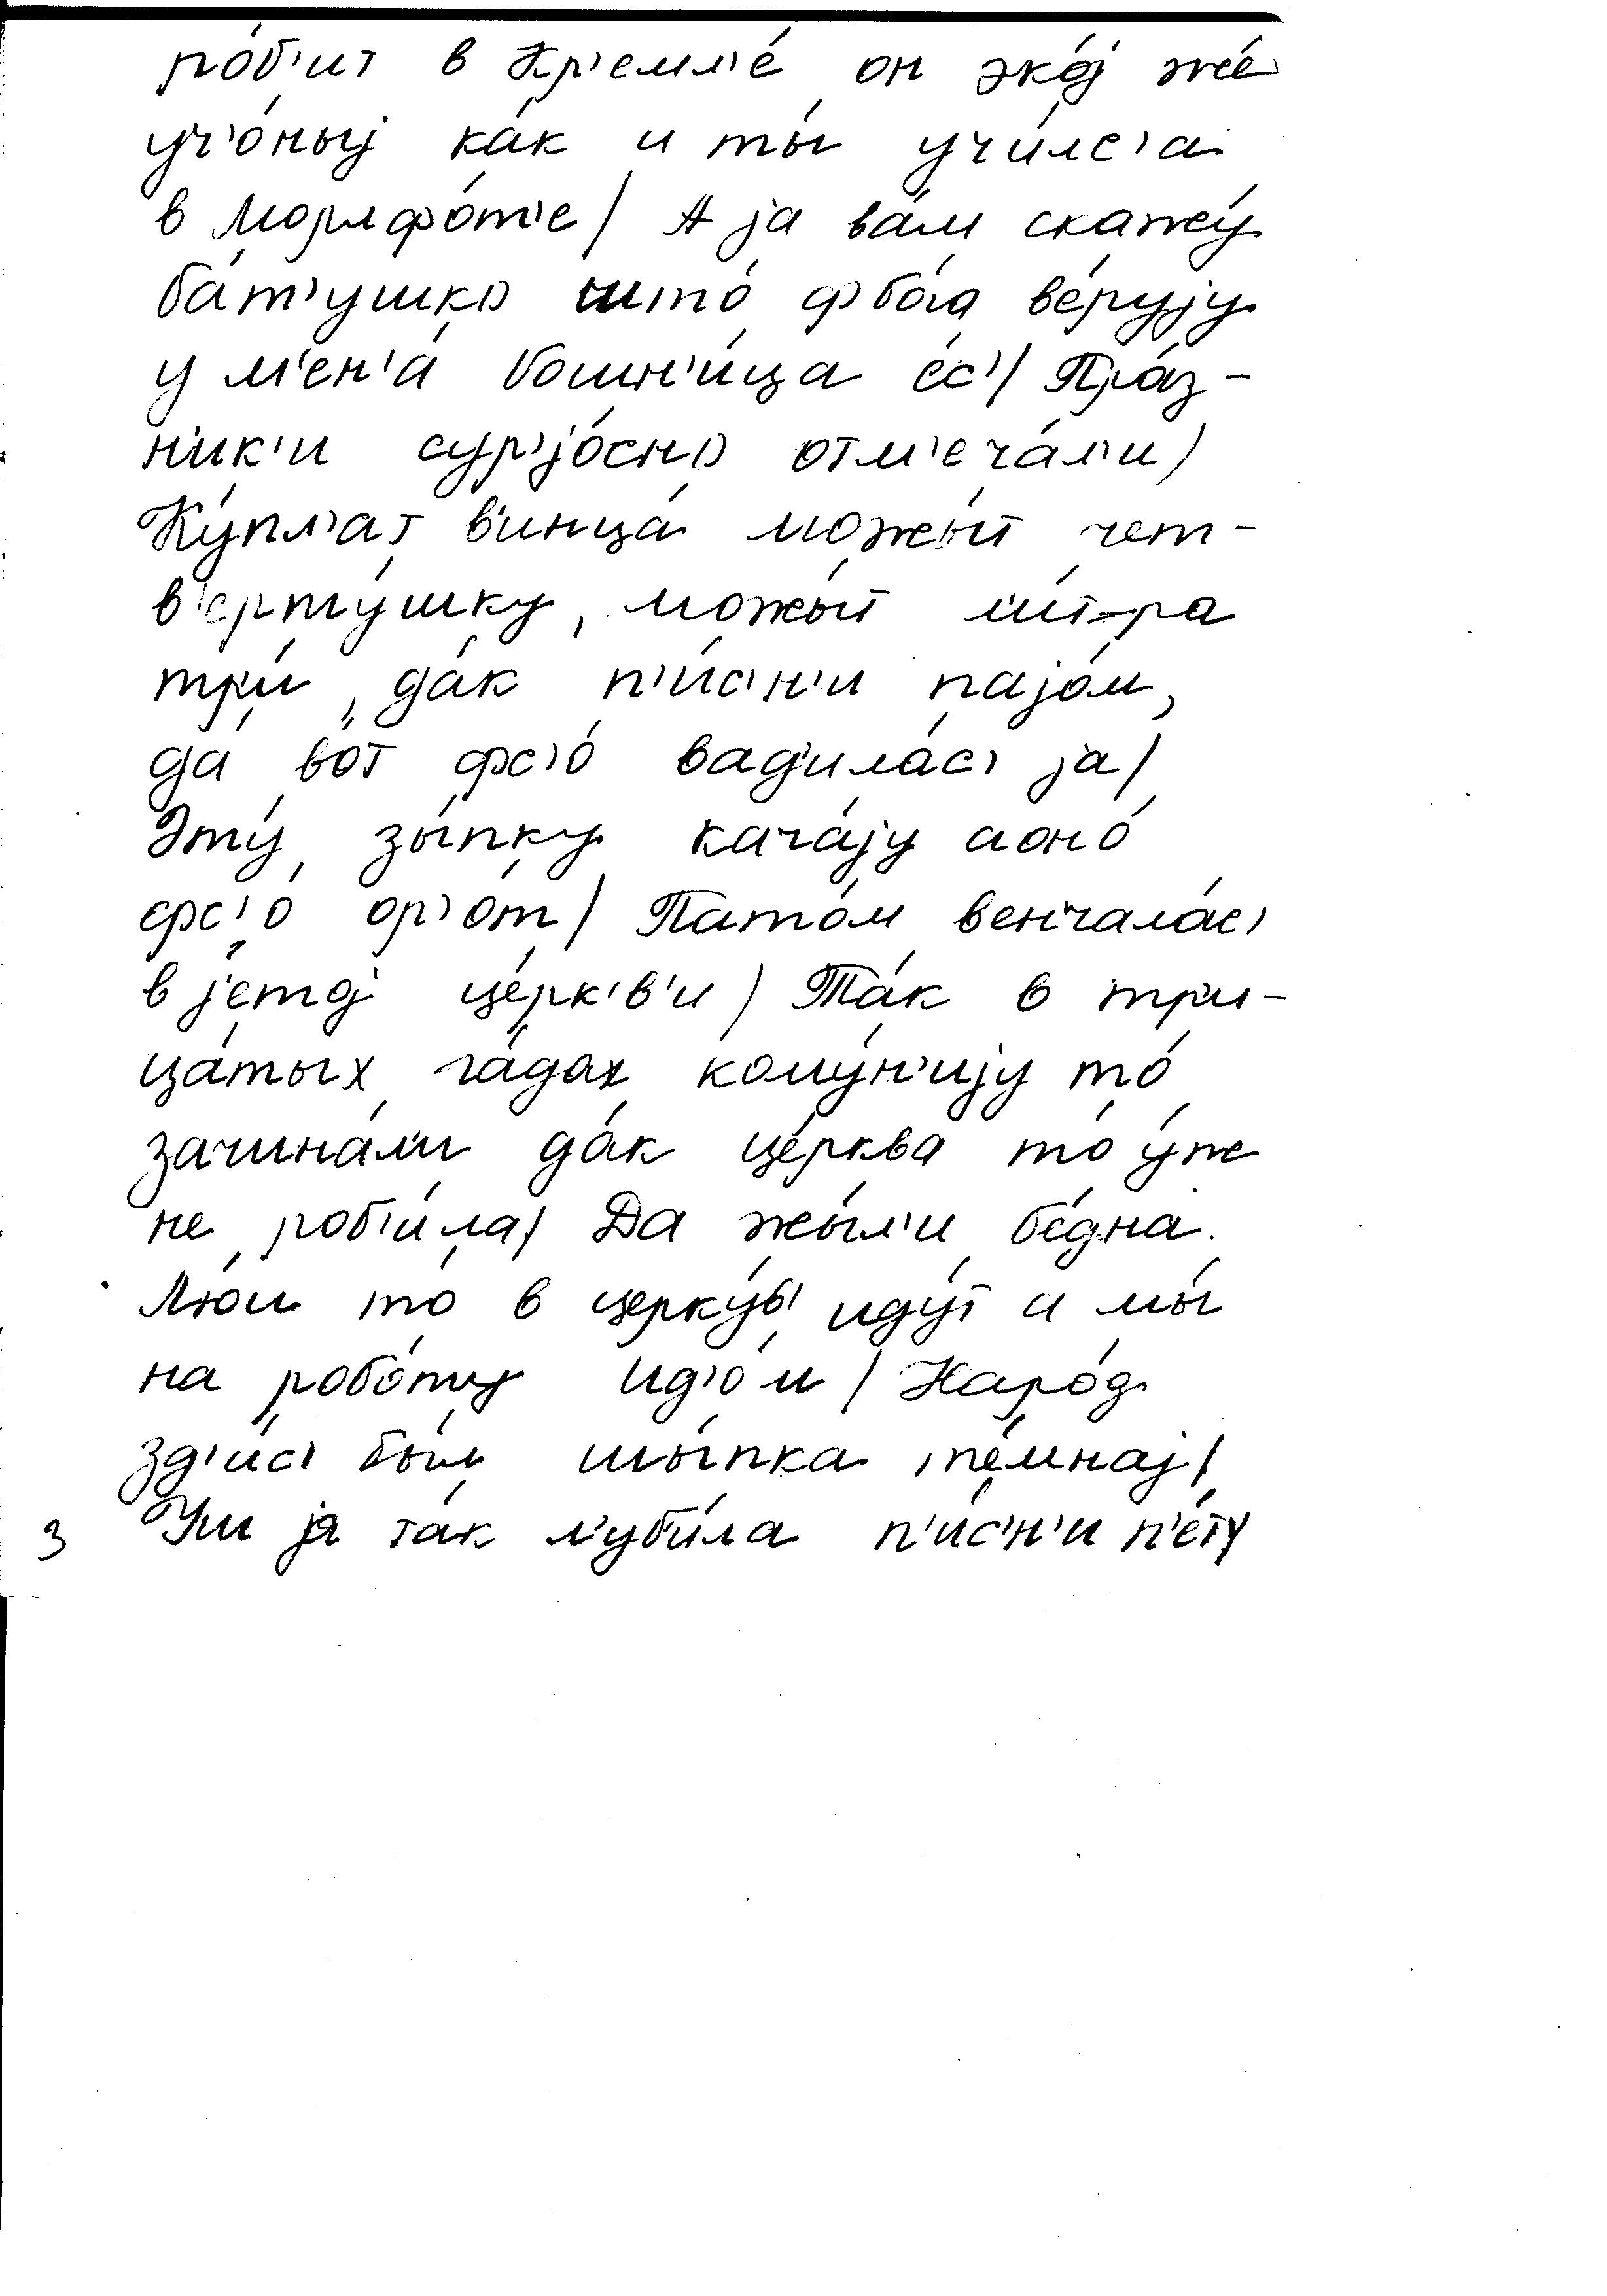 ро́б'ит в Кр'емл'е́ он эко́j же́
уч'о́ныj ка́к и ты́ учи́лс'а
в Морлфо́т'е/ А jа ва́м скажу́
ба́т'ушко што́ ф бо́га ве́руjу
у м'ен'а́ бошн'и́ца е́с'/ Пра́з-
ник'и сур'jо́сно отм'еча́л'и/
Ку́пл'ат в'инца́ мо́жыт чет-
в'ерту́шку, мо́жыт ли́тра
три́, да́к п'и́с'н'и паjо́м,
да́ во́т фс'о́ вад'ила́с' jа/
Эту́ зы́пку кача́jу а оно́
фс'о́ ор'о́т/ Пато́м венчала́с'
в jе́тоj це́рк'в'и/ Та́к в три-
ца́тых га́дах кому́н'иjу то́
зачина́ли да́к це́рква то́ у́ж
не роб'и́ла/ Да жы́л'и бе́дна.
Лю́и то́ в церку́в' иду́т и мы́
на робо́ту ид'о́м/ Наро́д
зд'и́с' бы́л шы́пка т'е́мнаj/
Уш jа та́к л'уби́ла п'и́с'н'и п'е́т'/
3